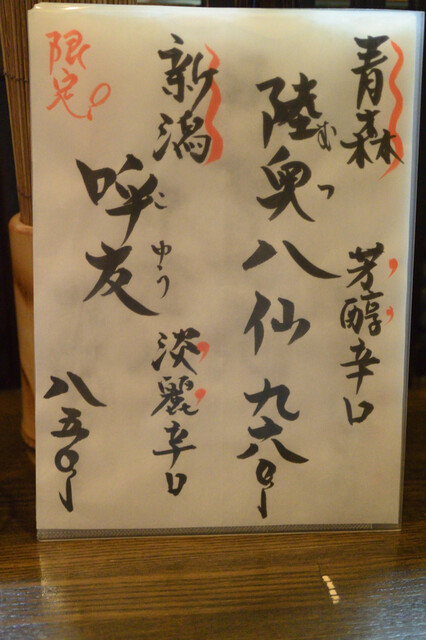 青森
芳醇辛口
陸奥八仙 九六〇
むつ
新潟
淡麗辛口
呼友
こゆう
八五〇
限定